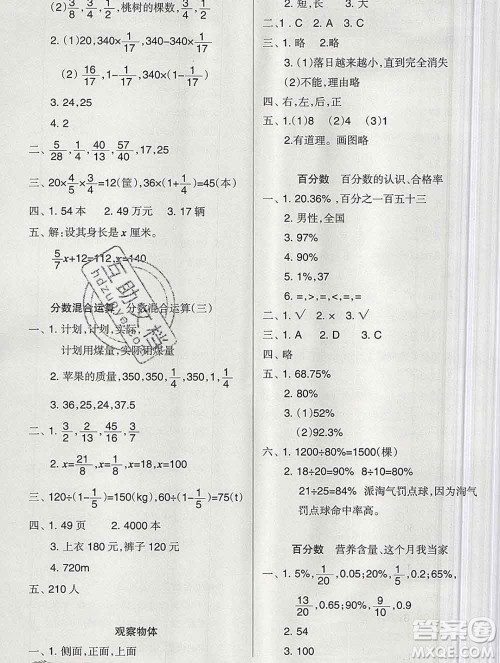 (2) 3/8, 3/8, 1/2, 1/2, 桃树的棵数, 3/8
2. (1)20, 340×1/17, 340×1/17
(2) 16/17, 1-1/17, 340×(1-1/17)
3. 24, 25
4. 2
二、5/28, 1/34, 4/3, 21/40, 17, 25
三、20×4/5×3/4=12(筐), 36×(1+1/4)=45(本)
四、1. 54 本 2. 49 万元 3. 17 辆
五、解:设其身长是 x 厘米。
5/7x+12=112, x=140
分数混合运算 分数混合运算(三)
一、1. 计划, 计划, 实际,
计划用煤量, 实际用煤量
2. 苹果的质量, 350, 350, 1/4, 350, 1/4
3. 36, 24, 25
二、1. 3/2, 2/13, 45/2, 40
2. x=21/8, x=5/6, x=18, x=100
三、120÷(1-1/5)=150(kg), 60÷(1-1/5)=75(t)
四、1. 49 页 2. 4000 本
3. 上衣 180 元, 裤子 120 元
4. 720m
五、210 人
观察物体
一、1. 侧面, 正面, 上面
2. 短, 长
二、1. D 2. A 3. C
三、1. 略 2. 略
3. (1)落日越来越小, 直到完全消失
(2)不能, 理由略
四、右, 左, 后, 正
五、1. (1)8 (2)4 (3)1
2. 有道理。画图略
百分数 百分数的认识、合格率
一、1. 20.36%, 百分之一百五十三
2. 男性, 全国
3. 1%
4. 90%
5. 97%
6. >, =, <, >
二、1. √ 2. × 3. √
三、1. A 2. D 3. C
四、略
五、1. 68.75%
2. (1)52%
(2)92.3%
六、1. 1200÷80%=1500(棵)
2. 9÷18=50% 8÷10=80%
21÷25=84% 派淘气罚点球, 因为淘气
罚点球命中率高。
百分数 营养含量、这个月我当家
一、1. 5%, 1/20, 0.05; 20%, 1/5, 0.2; 65%,
13/20, 0.65; 90%, 9/10, 0.9
2. 54
3. 100%
互助文档
hdzuoye.com
答案圈
MXQE.COM